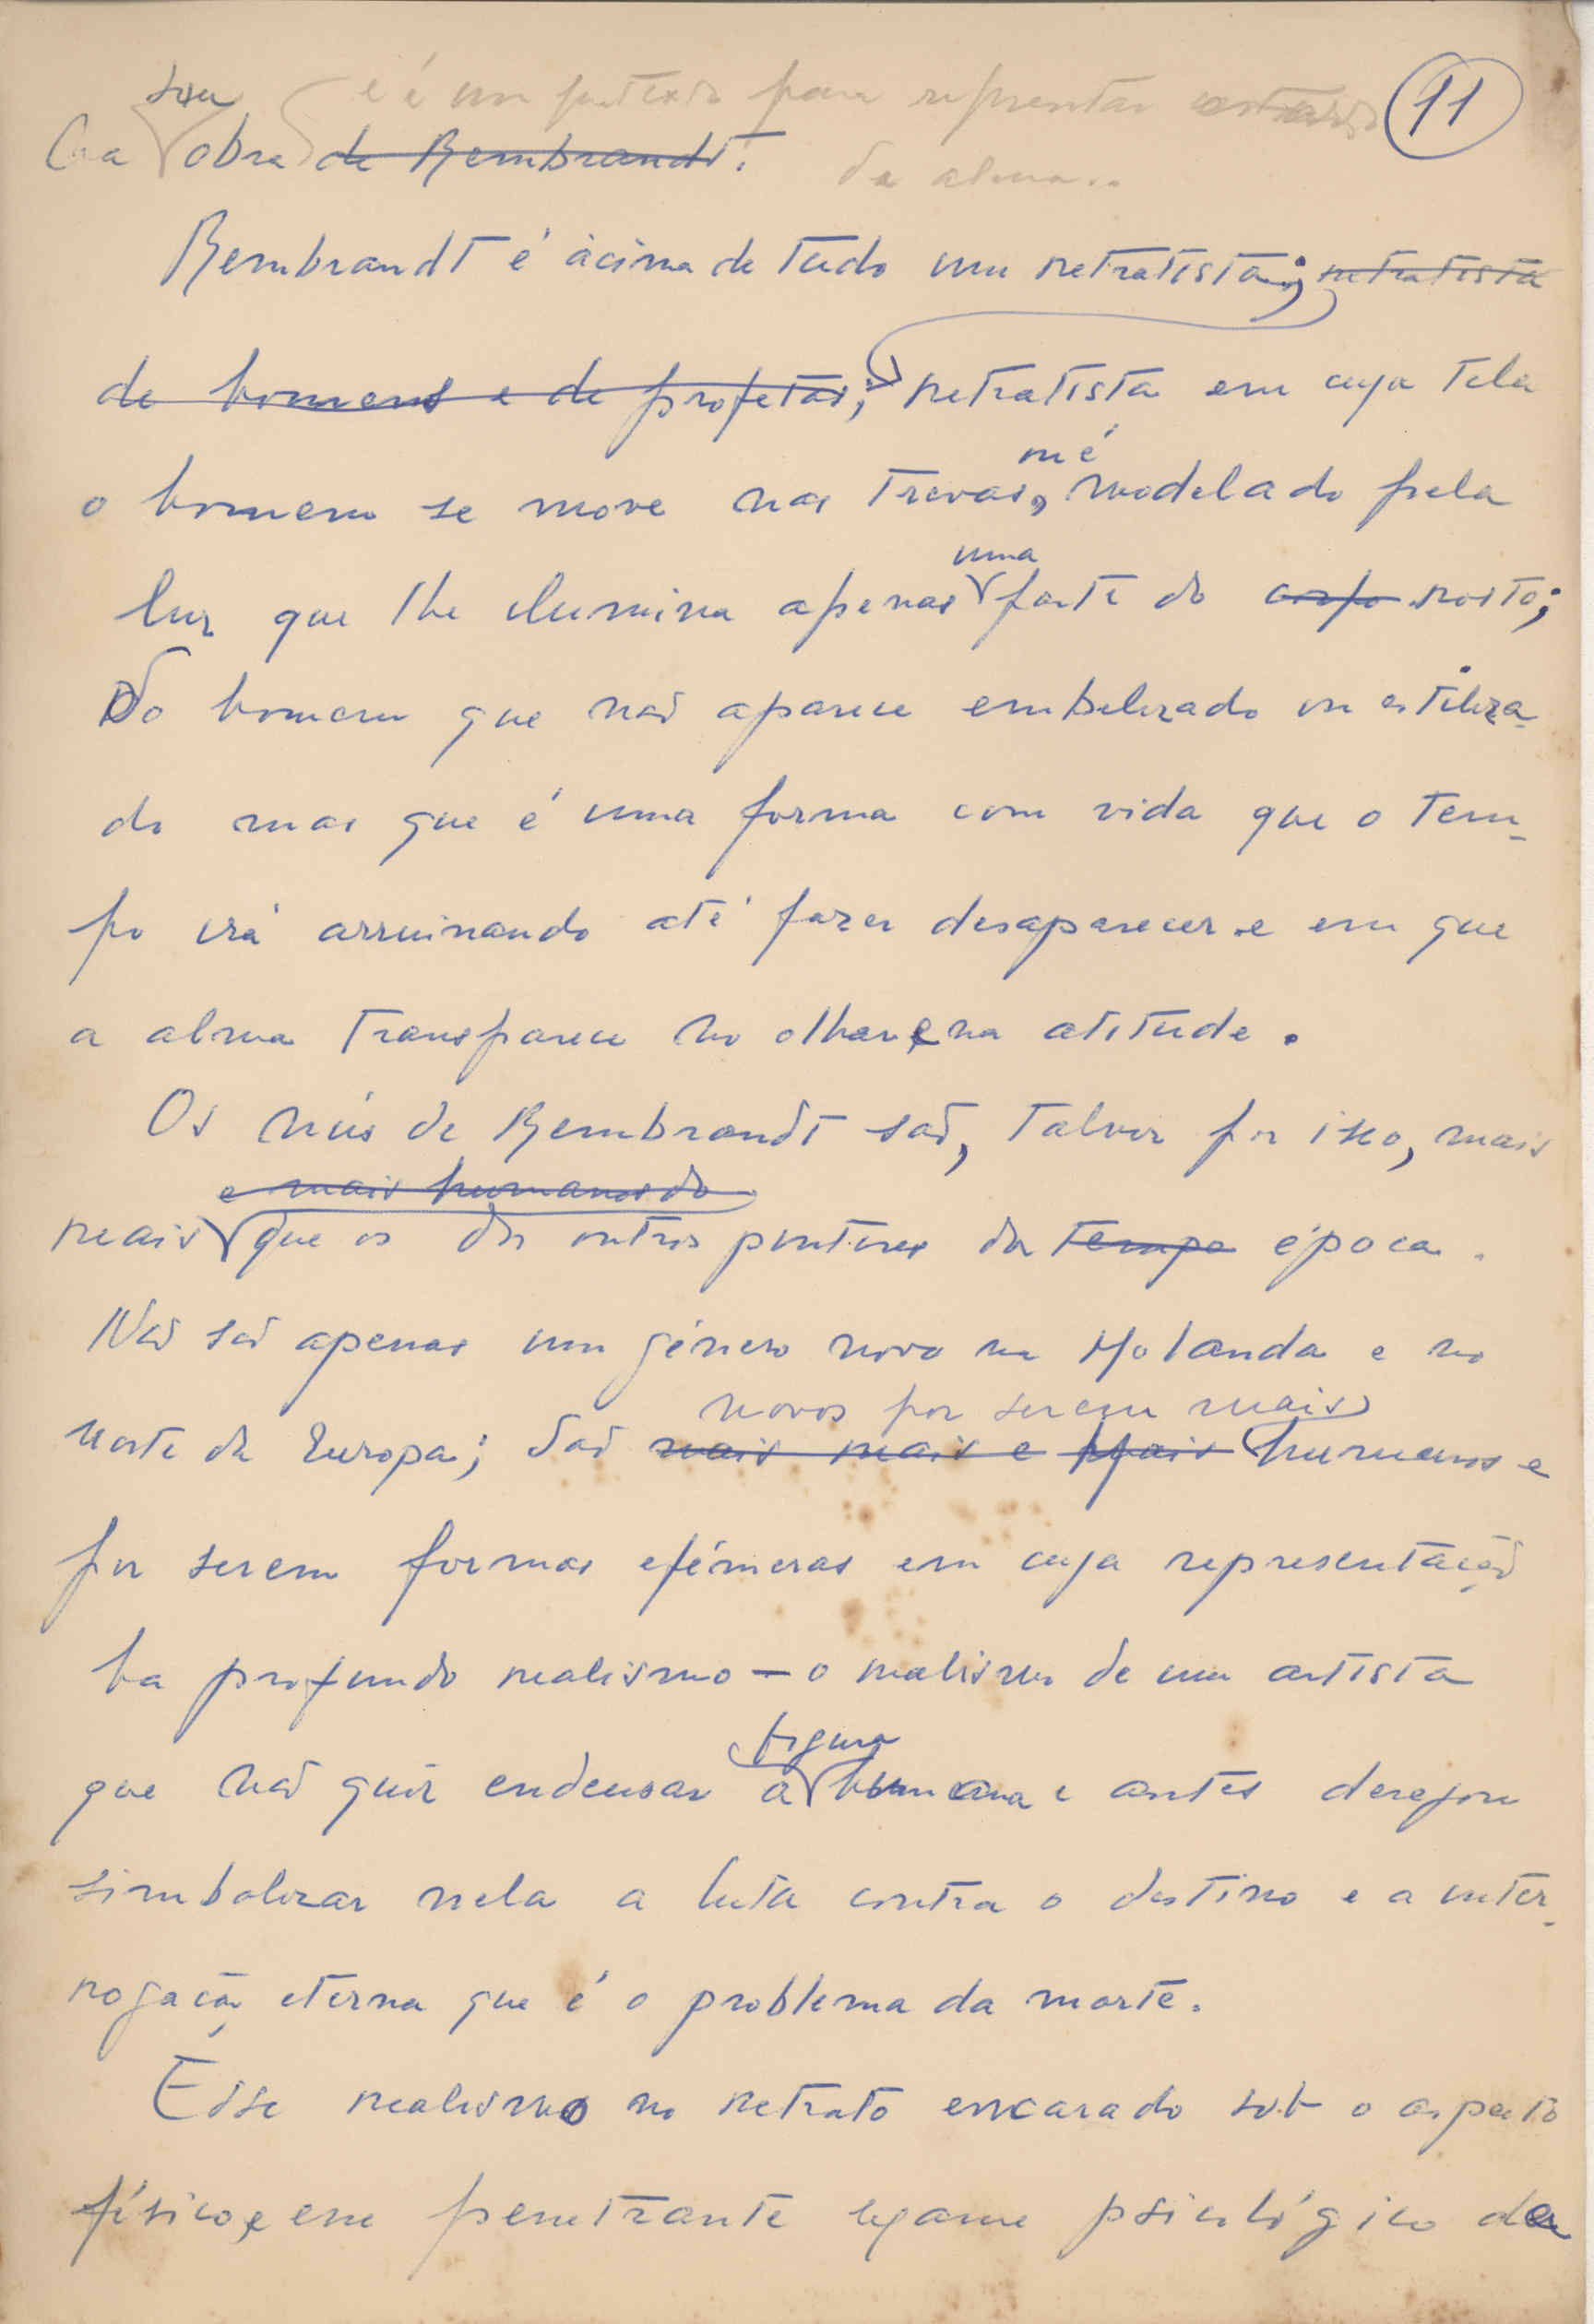 11
sua e é um pretexto para representar
na obra de Rembrandt.
da alma...
Rembrandt é àcima de tudo um retratista; retratista
de homens e de profetas; retratista em cuja tela
ou é
o homem se move nas trevas, modelado pela
uma
luz que lhe ilumina apenas parte do corpo rosto;
Do homem que não aparece embelezado ou estiliza-
do mas que é uma forma com vida que o tem-
po irá arruinando até fazer desaparecer e em que
a alma transparece no olhar e na atitude.
Os nús de Rembrandt são, talvez por isso, mais
e mais humanos do
reais que os dos outros pintores da tempo época.
Não são apenas um género novo na Holanda e no
novos por serem mais
norte da Europa; são mais reais e mais humanos e
por serem formas efémeras em cuja representação
ha profundo realismo - o realismo de um artista
figura
que não quiz endeusar a humana e antes desejou
simbolizar nela a luta contra o destino e a inter-
rogação eterna que é o problema da morte.
Êsse realismo no retrato encarado sob o aspecto
físico, e em penetrante exame psicológico da